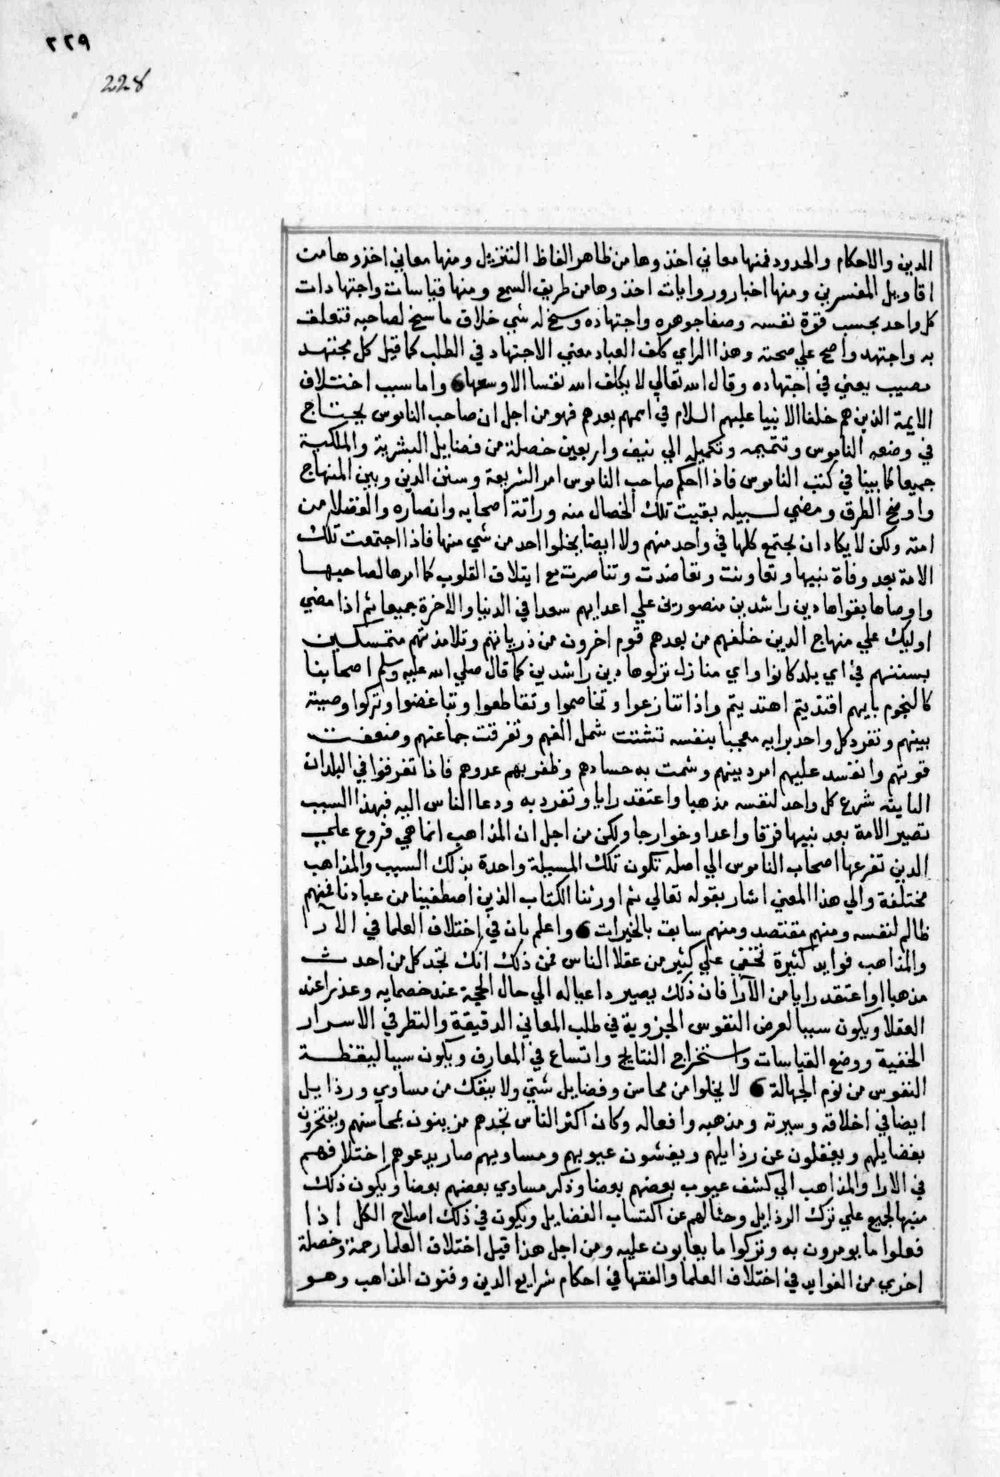 ٢٢٩
228
الدين والاحكام والحدود فمنها معاني اخذوها من ظاهر الفاظ التنزيل ومنها معاني اخذوها من
اقاويل المفسرين ومنها اخبار وروايات اخذوها من طريق السمع ومنها قياسات واجتهادات
كل واحد بحسب قوة نفسه وصفا جوهره واجتهاده وسنح له شي خلاف ما سنح لصاحبه فتعلق
به واجتهد واصح علي صحته وهذا الراي كلف العباد معني الاجتهاد في الطلب كما قيل كل مجتهد
مصيب يعني في اجتهاده وقال الله تعالي لا يكلف الله نفسا الا وسعها واما سبب اختلاف
الايمة الذين هم خلفا الانبيا عليهم السلام في اممهم بعدهم فهو من اجل ان صاحب الناموس يحتاج
في وضعه الناموس وتتميمه وتكميله الي نيف واربعين خصلة من فضايل البشرية والملكية
جميعا كما بينا في كتب الناموس فاذا احكم صاحب الناموس امر الشريعة وسنن الدين وبين المنهاج
واوضح الطرق ومضي لسبيله بقيت تلك الخصال منه وراثة اصحابه وانصاره والفضلا من
امته ولكن لا يكاد ان يجتمع كلها في واحد منهم ولا ايضا يخلوا احد من شي منها فاذا اجتمعت تلك
الامة بعد وفاة نبيها وتعاونت وتعاضدت وتناصرت مع ايتلاف القلوب كما امرها صاحبها
واوصاها بقوا هادين راشدين منصورين علي اعدايهم سعدا في الدنيا والاخرة جميعا ثم اذا مضي
اوليك علي منهاج الدين خلفهم من بعدهم قوم اخرون من ذرياتهم وتلامذتهم متمسكين
بسننهم في اي بلد كانوا واي منازل نزلوها دين راشدين كما قال صلي الله عليه وسلم اصحابنا
كالنجوم بايهم اقتديتم اهتديتم واذا تنازعوا وتخاصموا وتقاطعوا وتباغضوا وتركوا وصيته
بينهم وتفرد كل واحد برايه معجبا بنفسه تشتت شمل الفهم وتفرقت جماعتهم وضعفت
قوتهم وانفسد عليهم امر دينهم وشمت به حسادهم وظفر بهم عدوهم فاذا تفرقوا في البلدان
النايئه شرع كل واحد لنفسه مذهبا واعتقد رايا وتفرد به ودعا الناس اليه فبهذا السبب
تصير الامة بعد نبيها فرقا واعدا وخوارجا ولكن من اجل ان المذاهب انما هي فروع علي
الدين تفرعها اصحاب الناموس الي اصله تكون تلك المسيلة واحدة بذلك السبب والمذاهب
مختلفة والي هذا المعني اشار بقوله تعالي ثم اورثنا الكتاب الذين اصطفينا من عبادنا فمنهم
ظالم لنفسه ومنهم مقتصد ومنهم سابق بالخيرات واعلم بان في اختلاف العلما في الآرا
والمذاهب فوايد كثيرة تخفي علي كثير من عقلا الناس فمن ذلك انك تجد كل من احدث
مذهبا او اعتقد رايا من الآرا فان ذلك يصير داعيا له الي حال الحجة عند خصمايه وعذرا عند
العقلا ويكون سببا لعرض النفوس الجزوية في طلب المعاني الدقيقة والنظر في الاسرار
الخفية ووضع القياسات واستخراج النتايج واتساع في المعارف ويكون سببا ليقظة
النفوس من نوم الجهالة لا يخلوا من محاسن وفضايل شتي ولا ينفك من مساوي ورذايل
ايضا في اخلاقه وسيرته ومذهبه وافعاله وكان اكثر الناس تجدهم مزينون بمحاسنهم ويفتخرون
بفضايلهم ويغفلون عن رذايلهم ويفشون عيوبهم ومساويهم صار يدعوهم اختلافهم
في الارا والمذاهب الي كشف عيوب بعضهم بعضا وذكر مساوي بعضهم بعضا ويكون ذلك
منبها لجميع علي ترك الرذايل وحثا لهم عن اكتساب الفضايل ويكون في ذلك اصلاح الكل اذا
فعلوا ما يومرون به وتركوا ما يعابون عليه ومن اجل هذا قيل اختلاف العلما رحمة وخصلة
اخري من الفوايد في اختلاف العلما والفقها في احكام شرايع الدين وفنون المذاهب وهو